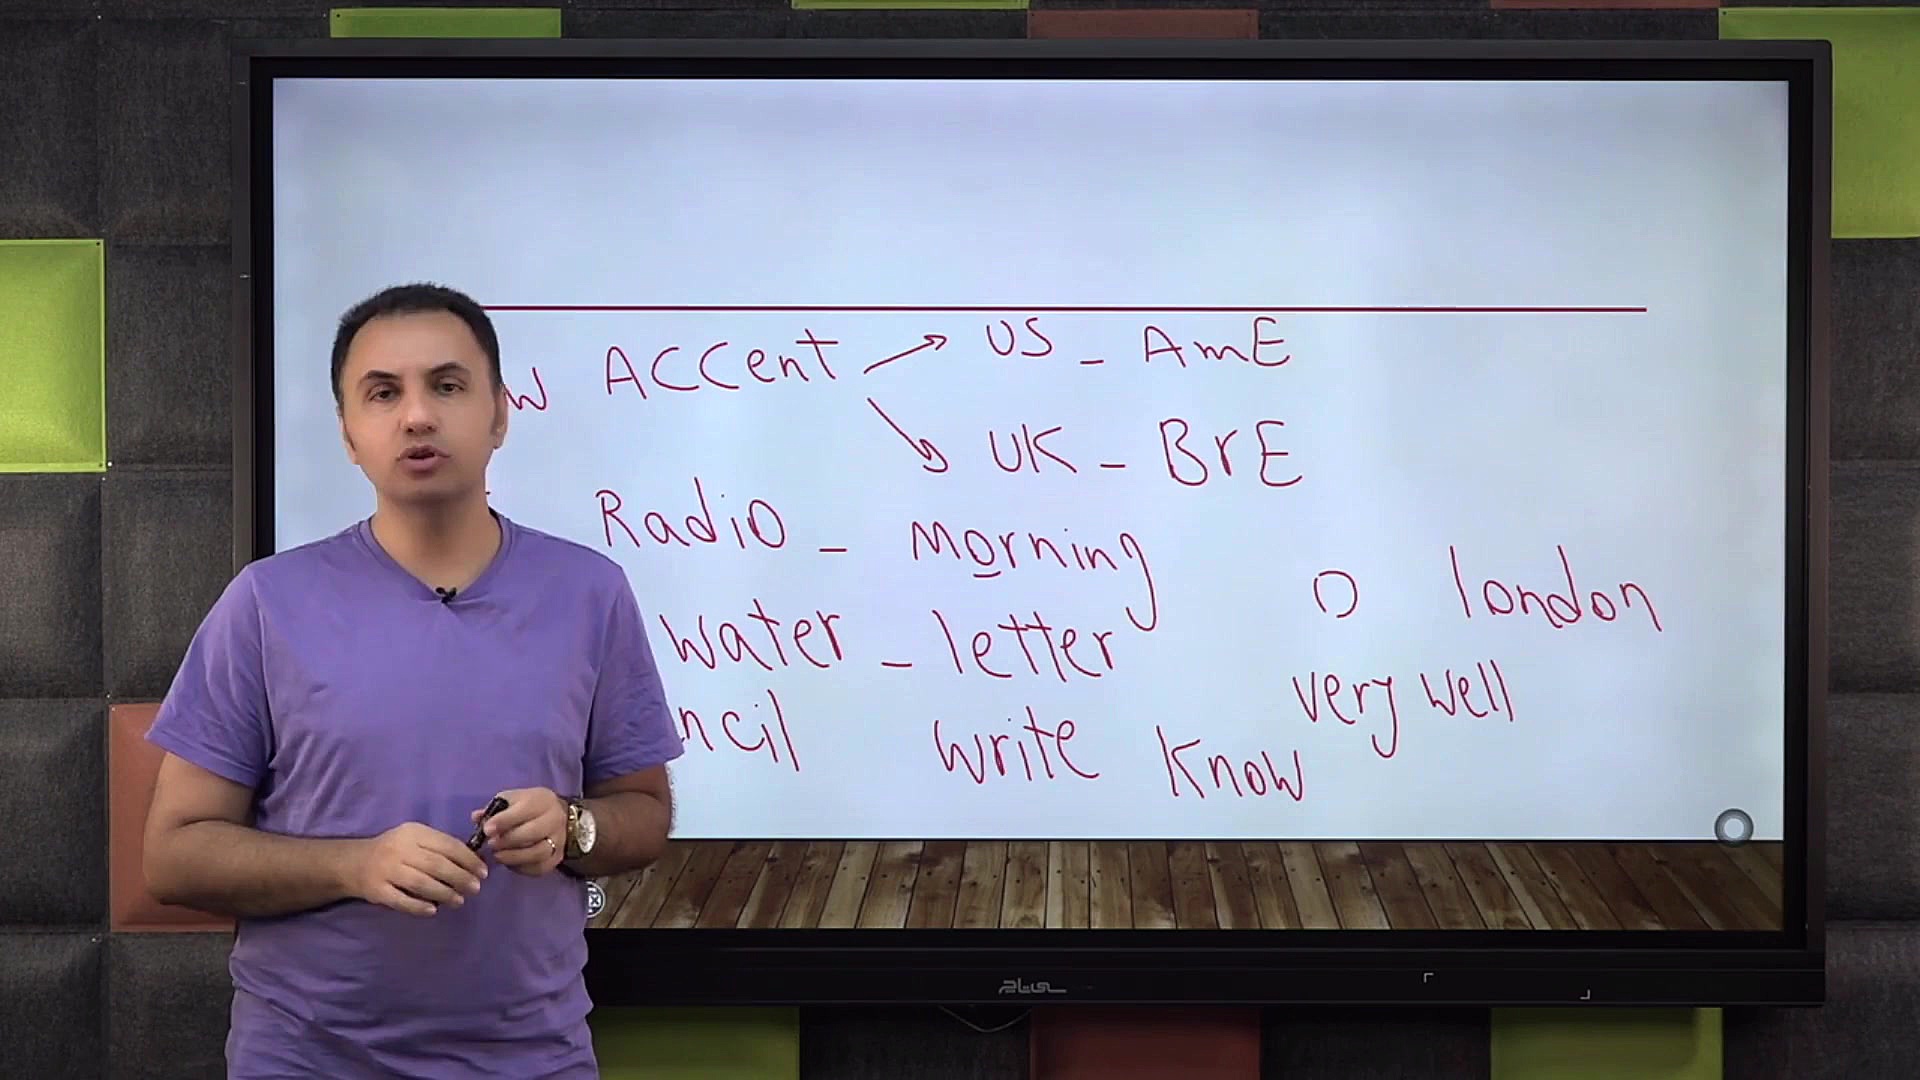 W ACCent US - AmE
UK - BrE
Radio - morning
O london
water - letter
very well
ncil write know